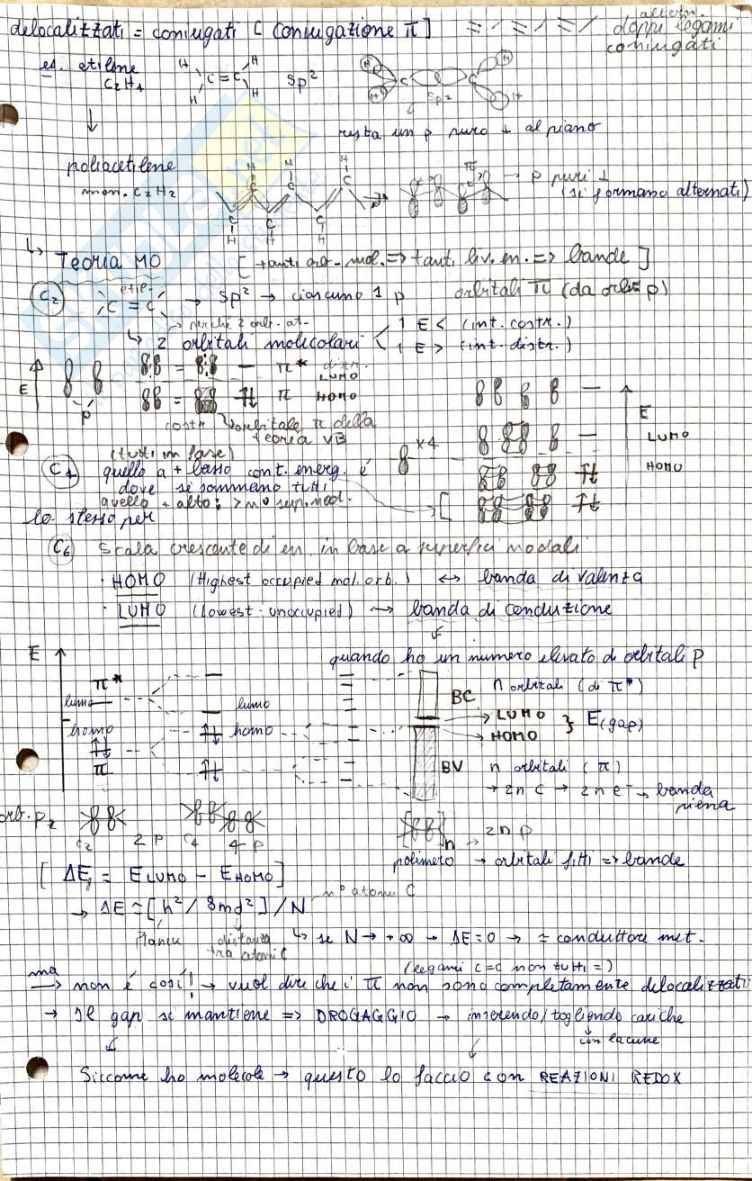 delocalizzati = coniugati [ Coniugazione π ] =/=/=/ altern. doppi legami coniugati
es. etilene H H C=C H H sp² H C C H sp2
C₂H₄
↓ resta un p puro ⊥ al piano
poliacetilene H H H π → p puri ⊥
mon. C₂H₂ C C C C C (si formano alternati)
H H H
↳ Teoria MO [ tanti orb. mol. => tanti liv. en. => bande ]
C₂ etil. C=C → sp² → ciascuno 1 p orbitali π (da orb p)
perché 2 orb. at.
↳ 2 orbitali molecolari < 1 E < (int. costr.)
1 E > (int. distr.)
E = π* distr. LUMO
p = π HOMO E
costr orbitale π della teoria VB LUMO
(tutti in fase) x4 HOMO
C₄ quello a + basso cont. energ. è
dove si sommano tutti
quello + alto: > n° sup. nod.
lo stesso per
C₆ scala crescente di en. in base a superfici nodali
· HOMO (Highest occupied mol. orb.) ↔ banda di valenza
· LUMO (lowest unoccupied) → banda di conduzione
E quando ho un numero elevato di orbitali p
π* BC n orbitali (di π*)
lumo lumo → LUMO } E(gap)
homo homo → HOMO
π BV n orbitali (π)
→ 2n C → 2n e⁻ → banda piena
orb. p₂ C₂ 2 p C₄ 4 p [ ]n → 2n p
polimero → orbitali fitti => bande
[ ΔE = E LUMO - E HOMO ]
→ ΔE ≃ [h²/8md²]/N n° atomi C
Planck distanza tra atomi C ↳ se N → +∞ → ΔE=0 → = conduttore met.
(legami C=C non tutti =)
ma → non è così! → vuol dire che i π non sono completamente delocalizzati
→ Il gap si mantiene => DROGAGGIO → inserendo/togliendo cariche
con lacune
Siccome ho molecole → questo lo faccio con REAZIONI REDOX